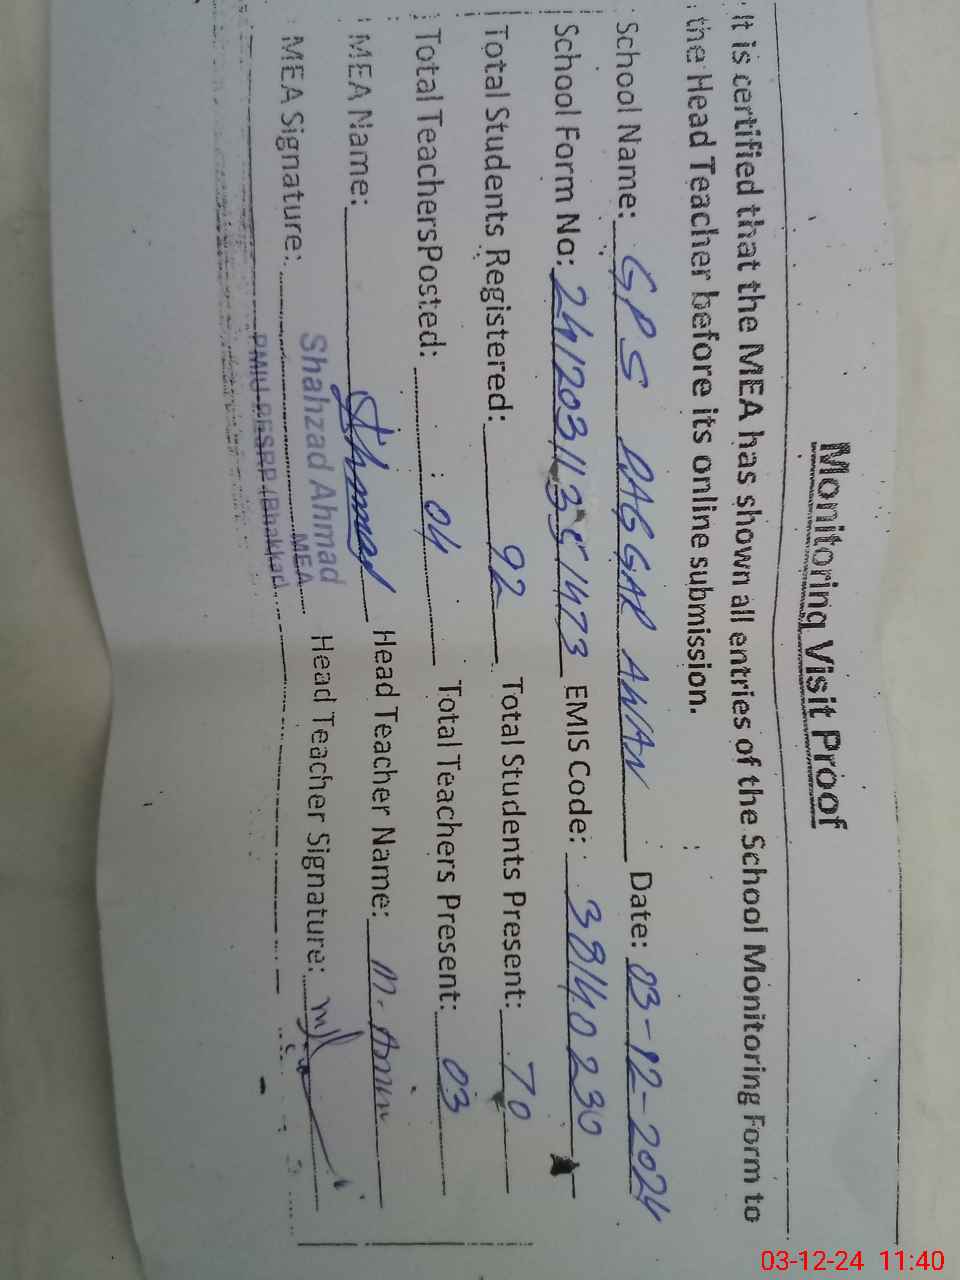 Monitoring Visit Proof
It is certified that the MEA has shown all entries of the School Monitoring Form to
the Head Teacher before its online submission.
School Name: GPS DAGGAR AWAN Date: 03-12-2024
School Form No: EMIS Code: 38140230
Total Students Registered: 92 Total Students Present: 70
Total TeachersPosted: 04 Total Teachers Present: 03
MEA Name: Ahmad Head Teacher Name: M. Amin
MEA Signature: Head Teacher Signature:
Shahzad Ahmad
MEA
PMIU-PESRP (Bhakkar)
03-12-24 11:40